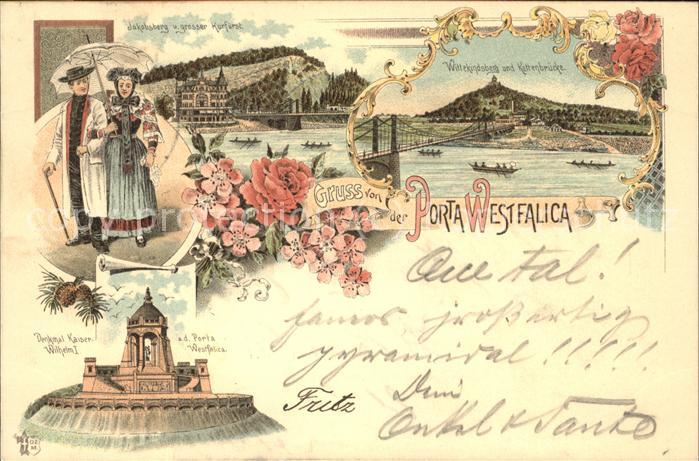 Jakobsberg u. grosser Kurfürst.
Wittekindsberg und Kettenbrücke.
Gruss von der PORTA WESTFALICA
Que tal!
famos großartig
pyramidal!!!!!
Fritz
Dein
Onkel & Tante
Denkmal Kaiser Wilhelm I.
a.d. Porta Westfalica.